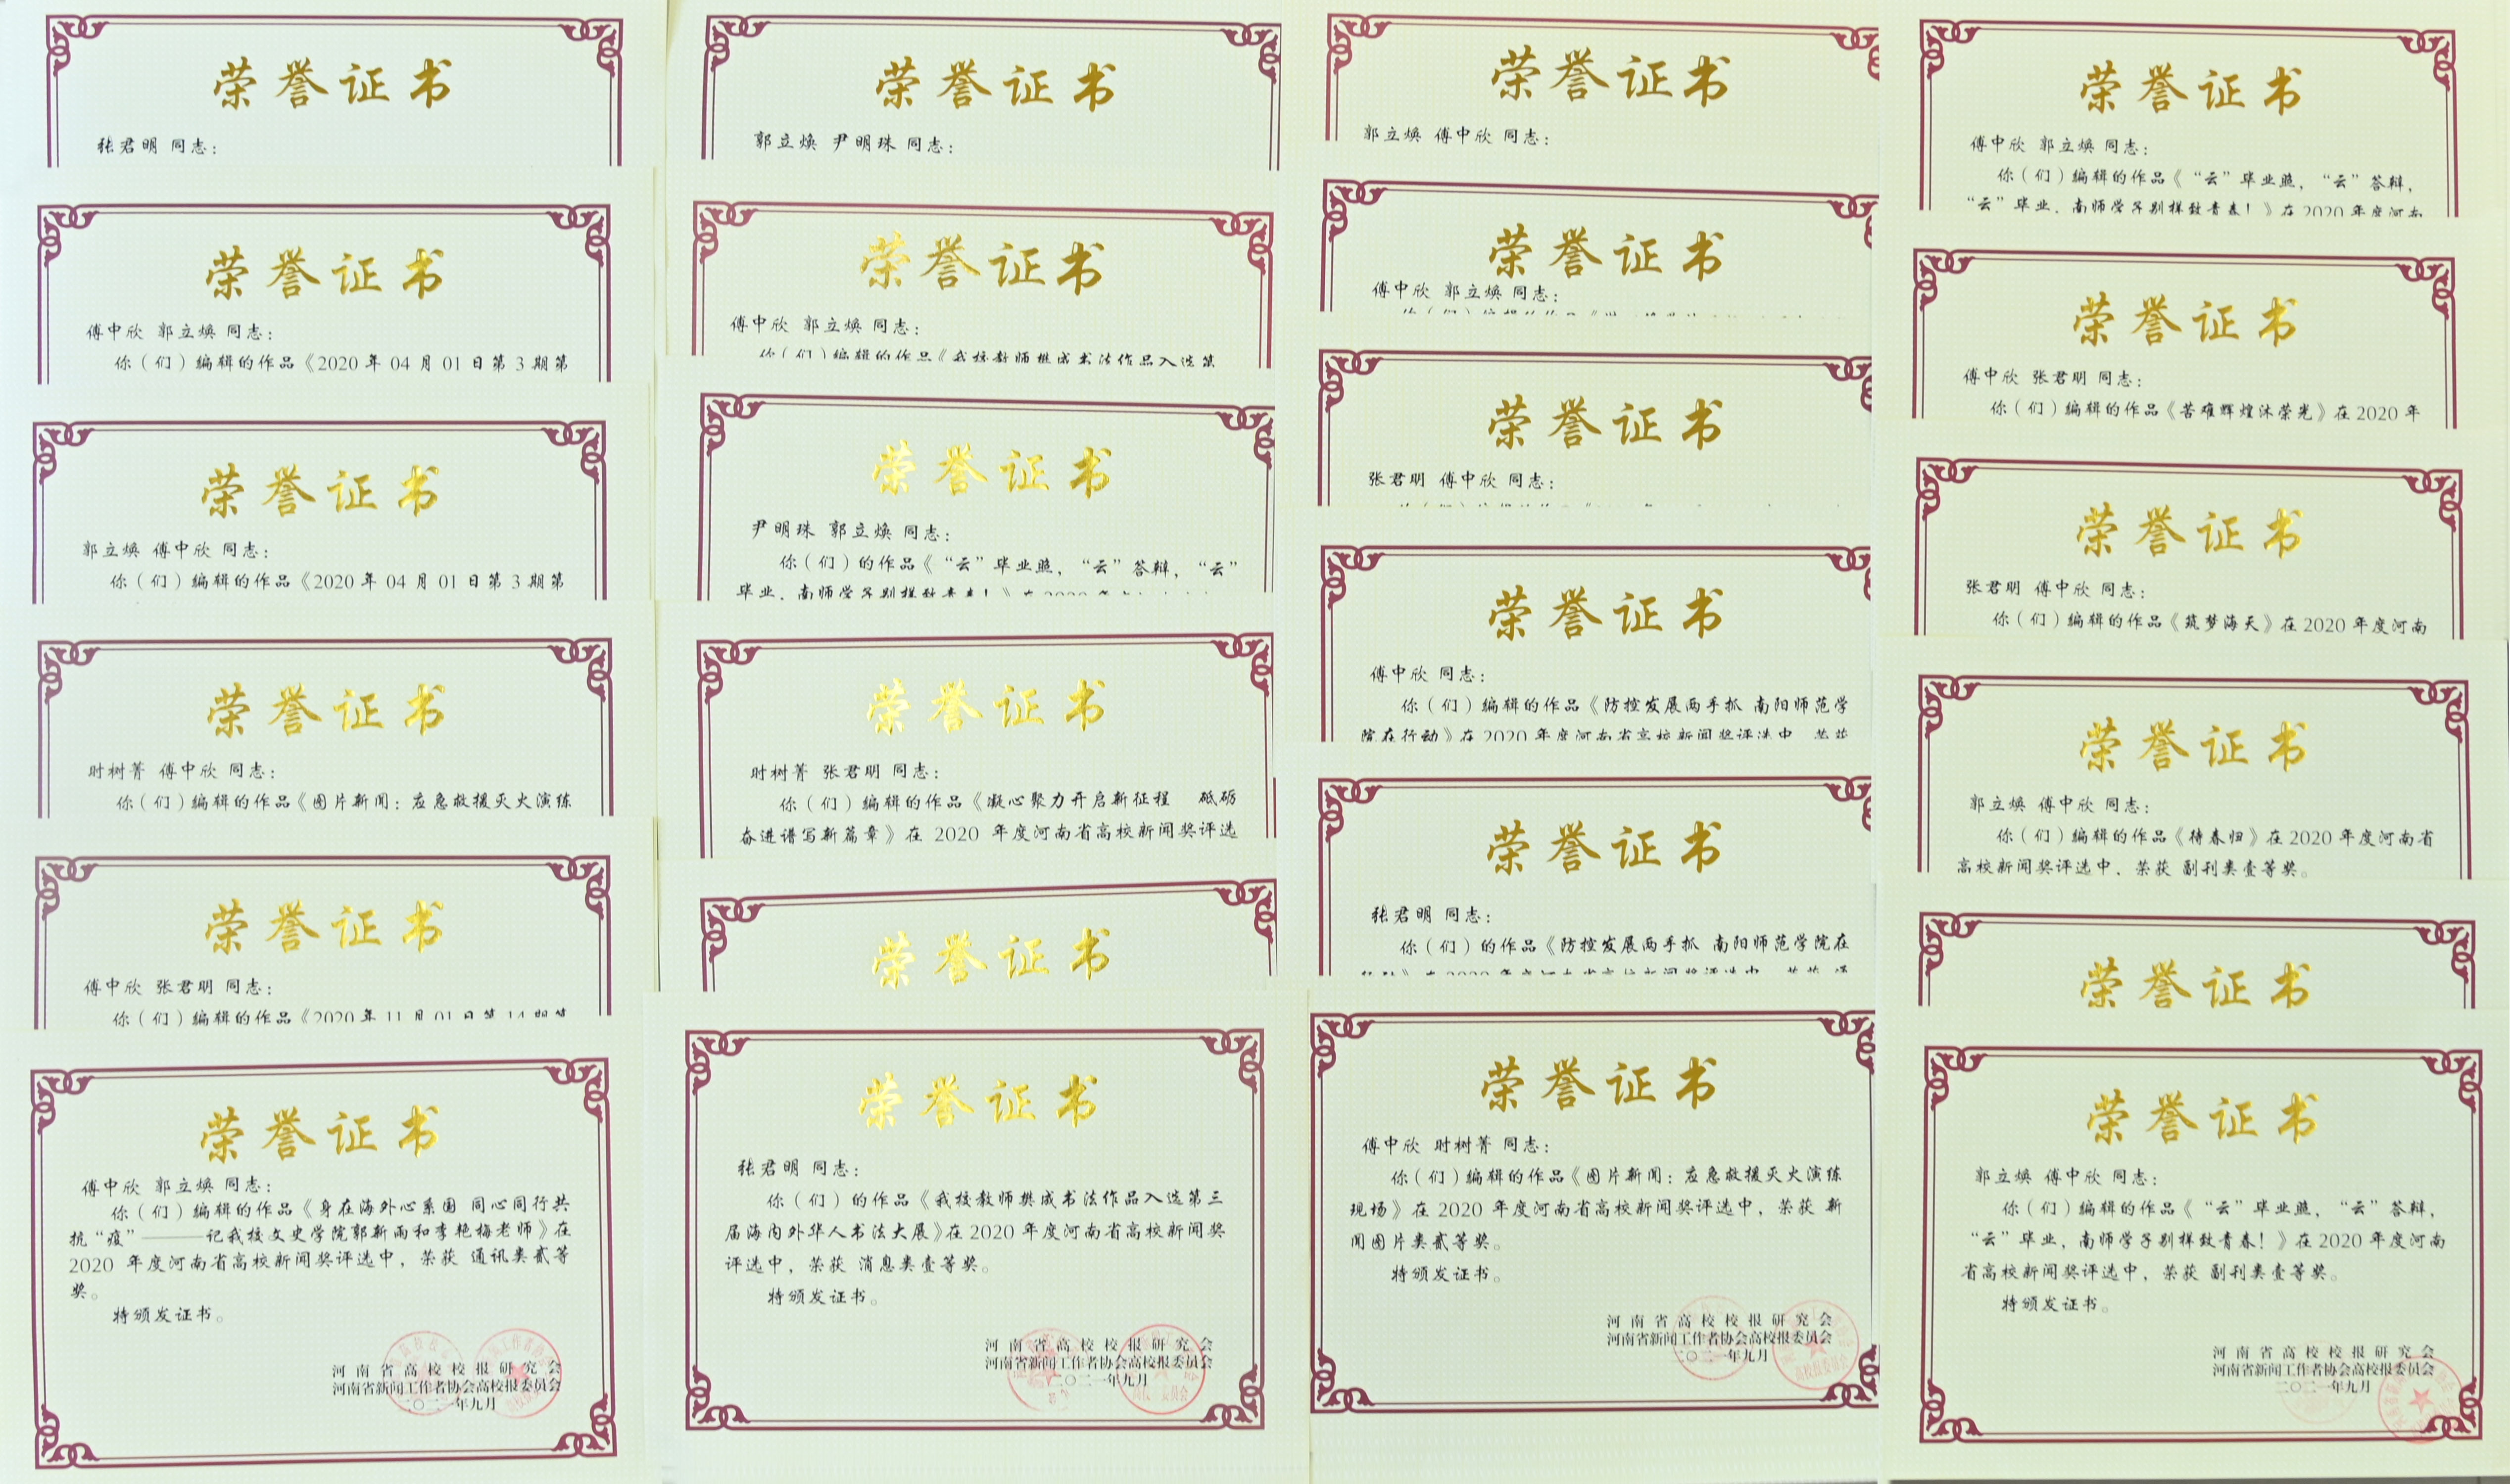 荣誉证书
张君明 同志：
荣誉证书
傅中欣 郭立焕 同志：
你（们）编辑的作品《2020 年 04 月 01 日第 3 期第
荣誉证书
郭立焕 傅中欣 同志：
你（们）编辑的作品《2020 年 04 月 01 日第 3 期第
荣誉证书
时树菁 傅中欣 同志：
你（们）编辑的作品《图片新闻：应急救援灭火演练
荣誉证书
傅中欣 张君明 同志：
你（们）编辑的作品《2020 年 11 月 01 日第 14 期第
荣誉证书
傅中欣 郭立焕 同志：
你（们）编辑的作品《身在海外心系国 同心同行共
抗“疫”———记我校文史学院郭新雨和李艳梅老师》在
2020 年度河南省高校新闻奖评选中，荣获 通讯类贰等
奖。
特颁发证书。
河南省高校校报研究会
河南省新闻工作者协会高校报委员会
二〇二一年九月
荣誉证书
郭立焕 尹明珠 同志：
荣誉证书
傅中欣 郭立焕 同志：
你（们）编辑的作品《我校教师樊成书法作品入选第
荣誉证书
尹明珠 郭立焕 同志：
你（们）的作品《“云”毕业照，“云”答辩，“云”
毕业，南师学子别样致青春！》在 2020 年
荣誉证书
时树菁 张君明 同志：
你（们）编辑的作品《凝心聚力开启新征程 砥砺
奋进谱写新篇章》在 2020 年度河南省高校新闻奖评选
荣誉证书
荣誉证书
张君明 同志：
你（们）的作品《我校教师樊成书法作品入选第三
届海内外华人书法大展》在 2020 年度河南省高校新闻奖
评选中，荣获 消息类壹等奖。
特颁发证书。
河南省高校校报研究会
河南省新闻工作者协会高校报委员会
二〇二一年九月
荣誉证书
郭立焕 傅中欣 同志：
荣誉证书
傅中欣 郭立焕 同志：
你（们）编辑的作品《
荣誉证书
张君明 傅中欣 同志：
荣誉证书
傅中欣 同志：
你（们）编辑的作品《防控发展两手抓 南阳师范学
院在行动》在 2020 年度河南省高校新闻奖评选中，荣获
荣誉证书
张君明 同志：
你（们）的作品《防控发展两手抓 南阳师范学院在
行动》在 2020 年度河南省高校新闻奖评选中，荣获
荣誉证书
傅中欣 时树菁 同志：
你（们）编辑的作品《图片新闻：应急救援灭火演练
现场》在 2020 年度河南省高校新闻奖评选中，荣获 新
闻图片类贰等奖。
特颁发证书。
河南省高校校报研究会
河南省新闻工作者协会高校报委员会
二〇二一年九月
荣誉证书
傅中欣 郭立焕 同志：
你（们）编辑的作品《“云”毕业照，“云”答辩，
“云”毕业，南师学子别样致青春！》在 2020 年度河南
荣誉证书
傅中欣 张君明 同志：
你（们）编辑的作品《苦难辉煌沐荣光》在 2020 年
荣誉证书
张君明 傅中欣 同志：
你（们）编辑的作品《筑梦海天》在 2020 年度河南
荣誉证书
郭立焕 傅中欣 同志：
你（们）编辑的作品《待春归》在 2020 年度河南省
高校新闻奖评选中，荣获 副刊类壹等奖。
荣誉证书
荣誉证书
郭立焕 傅中欣 同志：
你（们）编辑的作品《“云”毕业照，“云”答辩，
“云”毕业，南师学子别样致青春！》在 2020 年度河南
省高校新闻奖评选中，荣获 副刊类壹等奖。
特颁发证书。
河南省高校校报研究会
河南省新闻工作者协会高校报委员会
二〇二一年九月